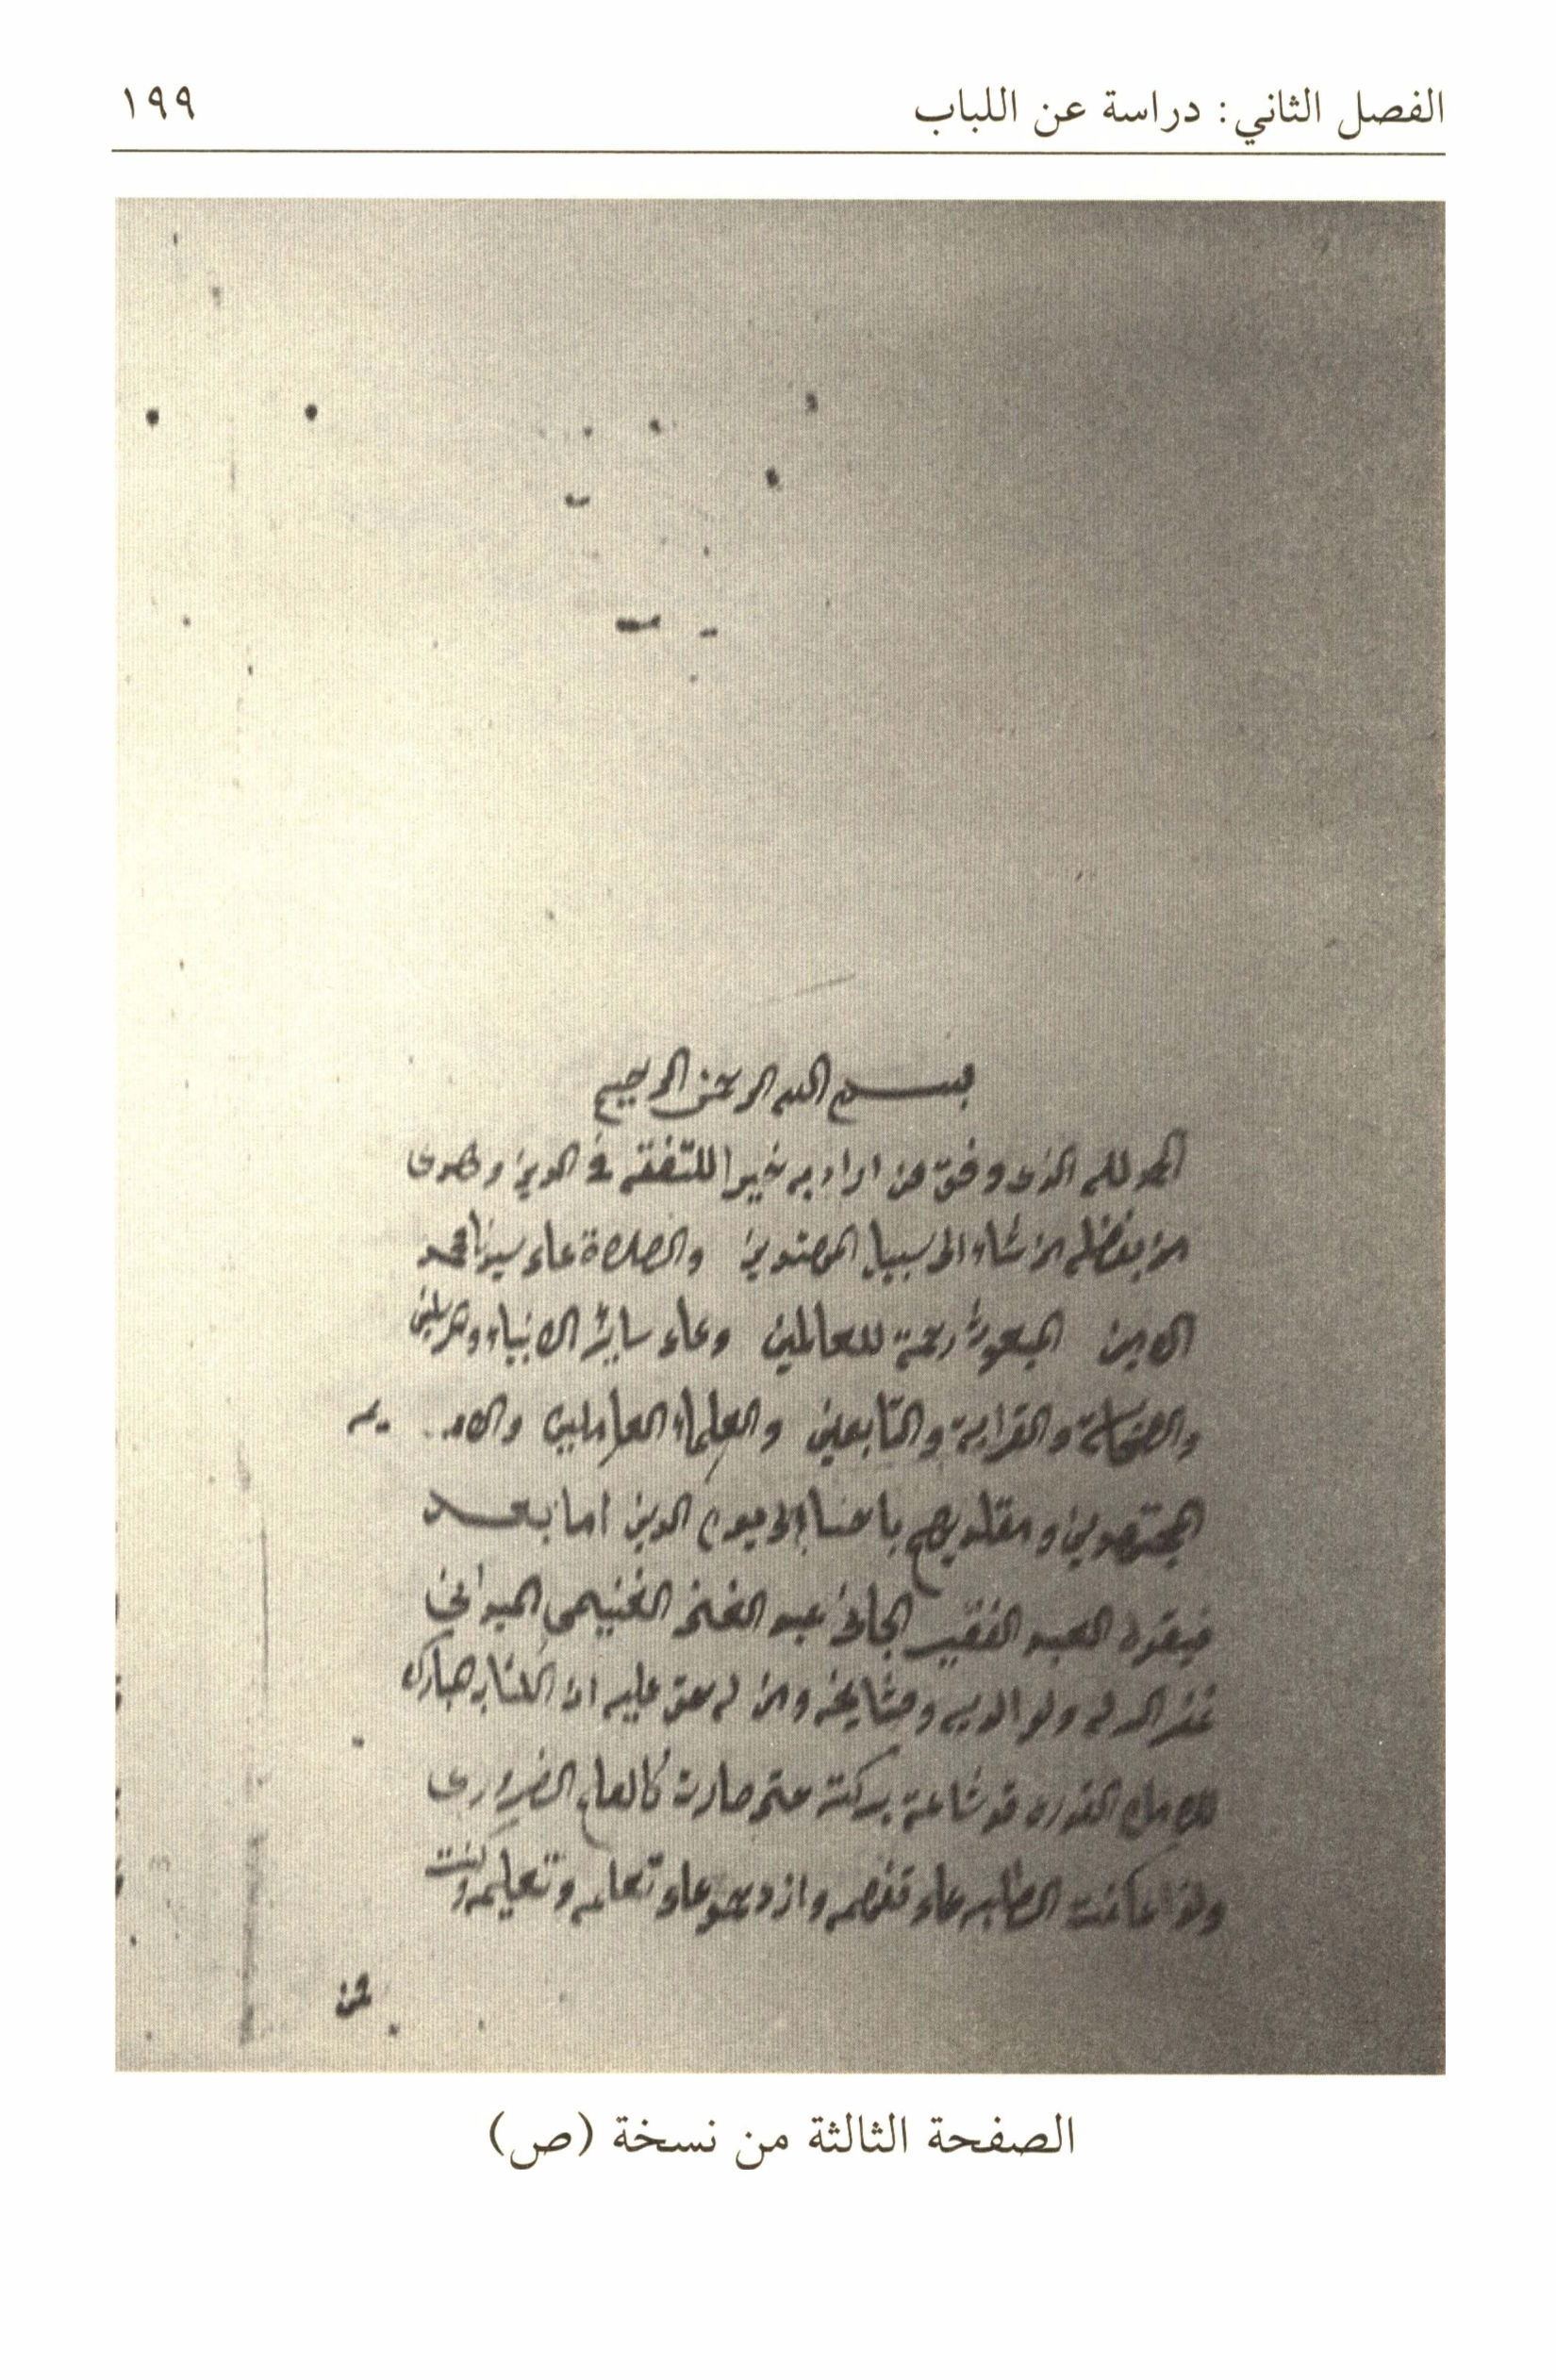 الفصل الثاني: دراسة عن اللباب
١٩٩
بسم الله الرحمن الرحيم
الحمد لله الذي وفق من اراد به خيرا للتفقه في الدين وهدى
من بفضله من شاء الى سبيل المهتدين والصلاة على سيدنا محمد
الامين المبعوث رحمة للعالمين وعلى ساير الانبياء والمرسلين
والصحابة والقرابة والتابعين والعلماء العاملين
المجتهدين ومقلديهم باحسان الى يوم الدين اما بعد
فيقول العبد الفقير الجاني عبد الغني الغنيمي الميداني
غفر الله له ولوالديه ومشايخه ومن له حق عليه ان الكتاب المبارك
للامام القدوري قد شاعت بركته حتى صارت كالعلم الضروري
ولذا عكفت الطلبة على تفهمه وازدحموا على تعلمه وتعليمه وكنت
ممن
الصفحة الثالثة من نسخة (ص)